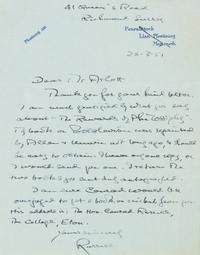 41 Queen's Road
Richmond Surrey
Penralltgoch
Llan Ffestiniog
Merioneth
Dear Mr Arlott
Thank you for your kind letter.
I am much gratified by what you say
about the Rewards of Philosophy.
My book on Bolshevism was reprinted
by Allen & Unwin not long ago & should
be easy to obtain. I have no spare copy, or
I would send you one. I return the
two books you sent duly autographed.
I am sure Conrad would be
overjoyed to get a book on cricket from you.
His address is: The Hon Conrad Russell,
The College, Eton.
Yours sincerely
Russell